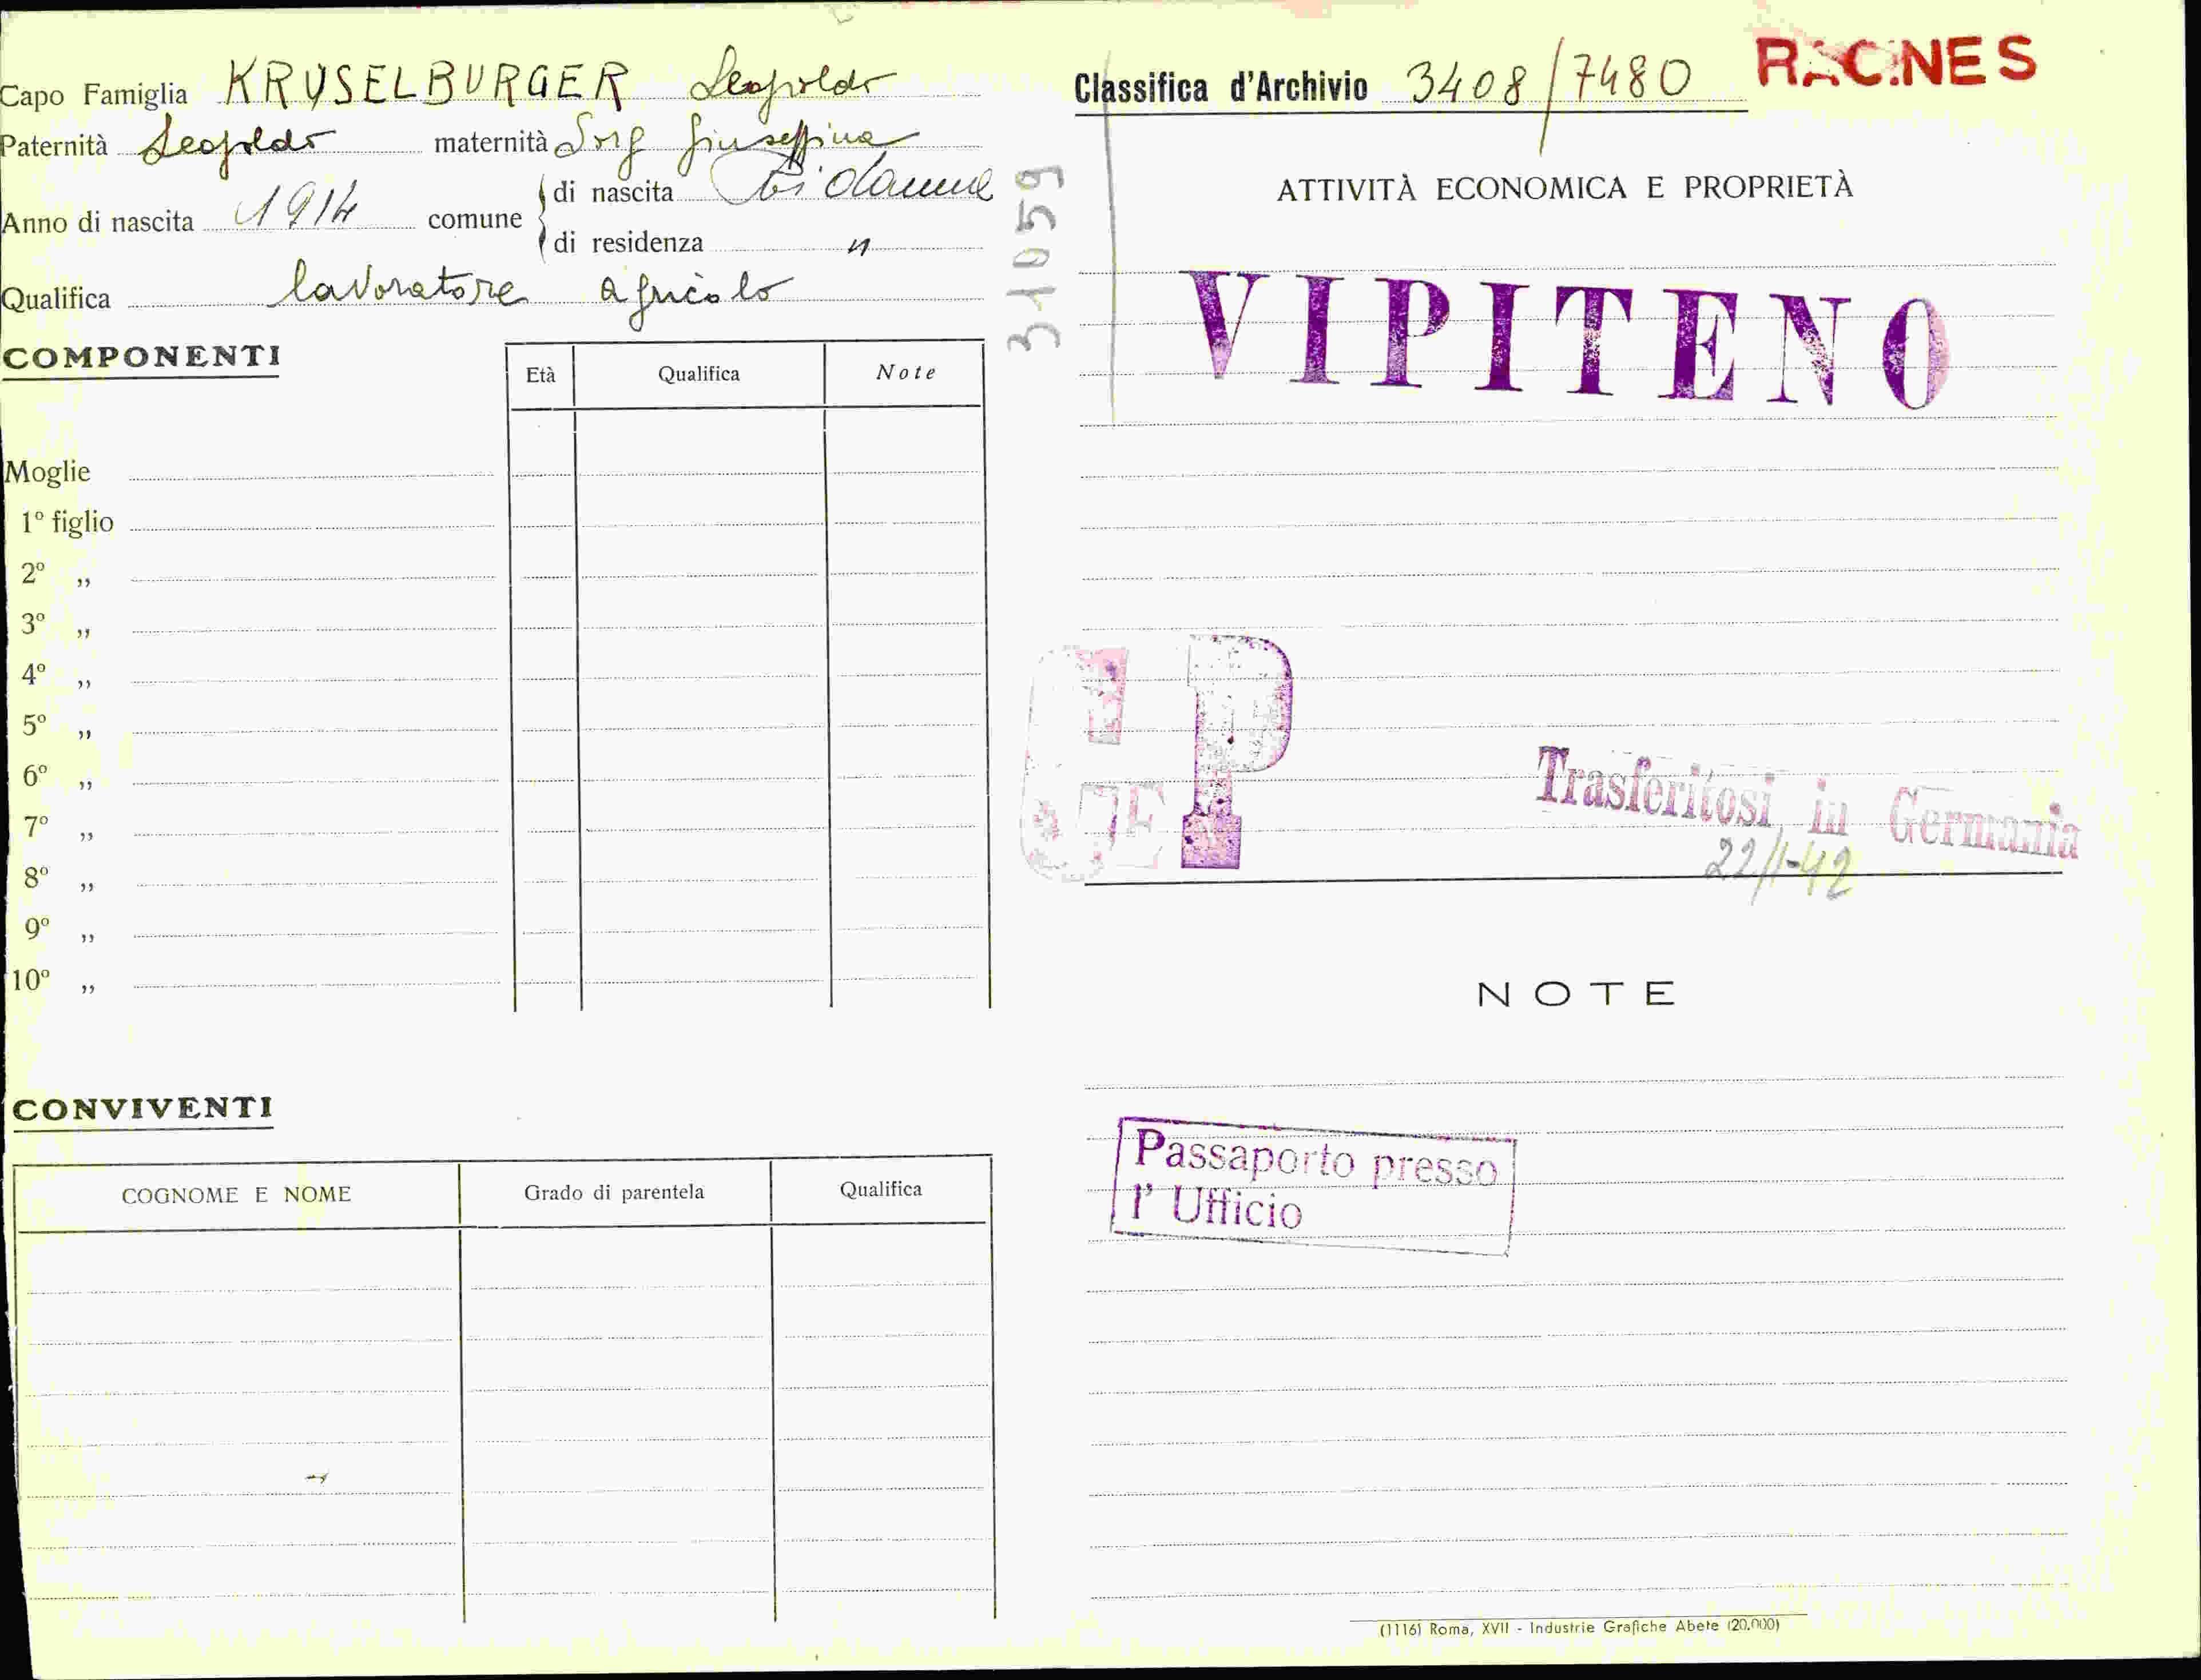 Capo Famiglia KRUSELBURGER Leopoldo
Paternità Leopoldo maternità Sorg Giuseppina
Anno di nascita 1914 comune di nascita
di residenza "
Qualifica lavoratore agricolo
COMPONENTI
Età Qualifica Note
Moglie
1º figlio
2º „
3º „
4º „
5º „
6º „
7º „
8º „
9º „
10º „
CONVIVENTI
COGNOME E NOME Grado di parentela Qualifica
31059
Classifica d'Archivio 3408/7480 RACINES
ATTIVITÀ ECONOMICA E PROPRIETÀ
VIPITENO
P
Trasferitosi in Germania
22/1-42
NOTE
Passaporto presso
l' Ufficio
(1116) Roma, XVII - Industrie Grafiche Abete (20.000)